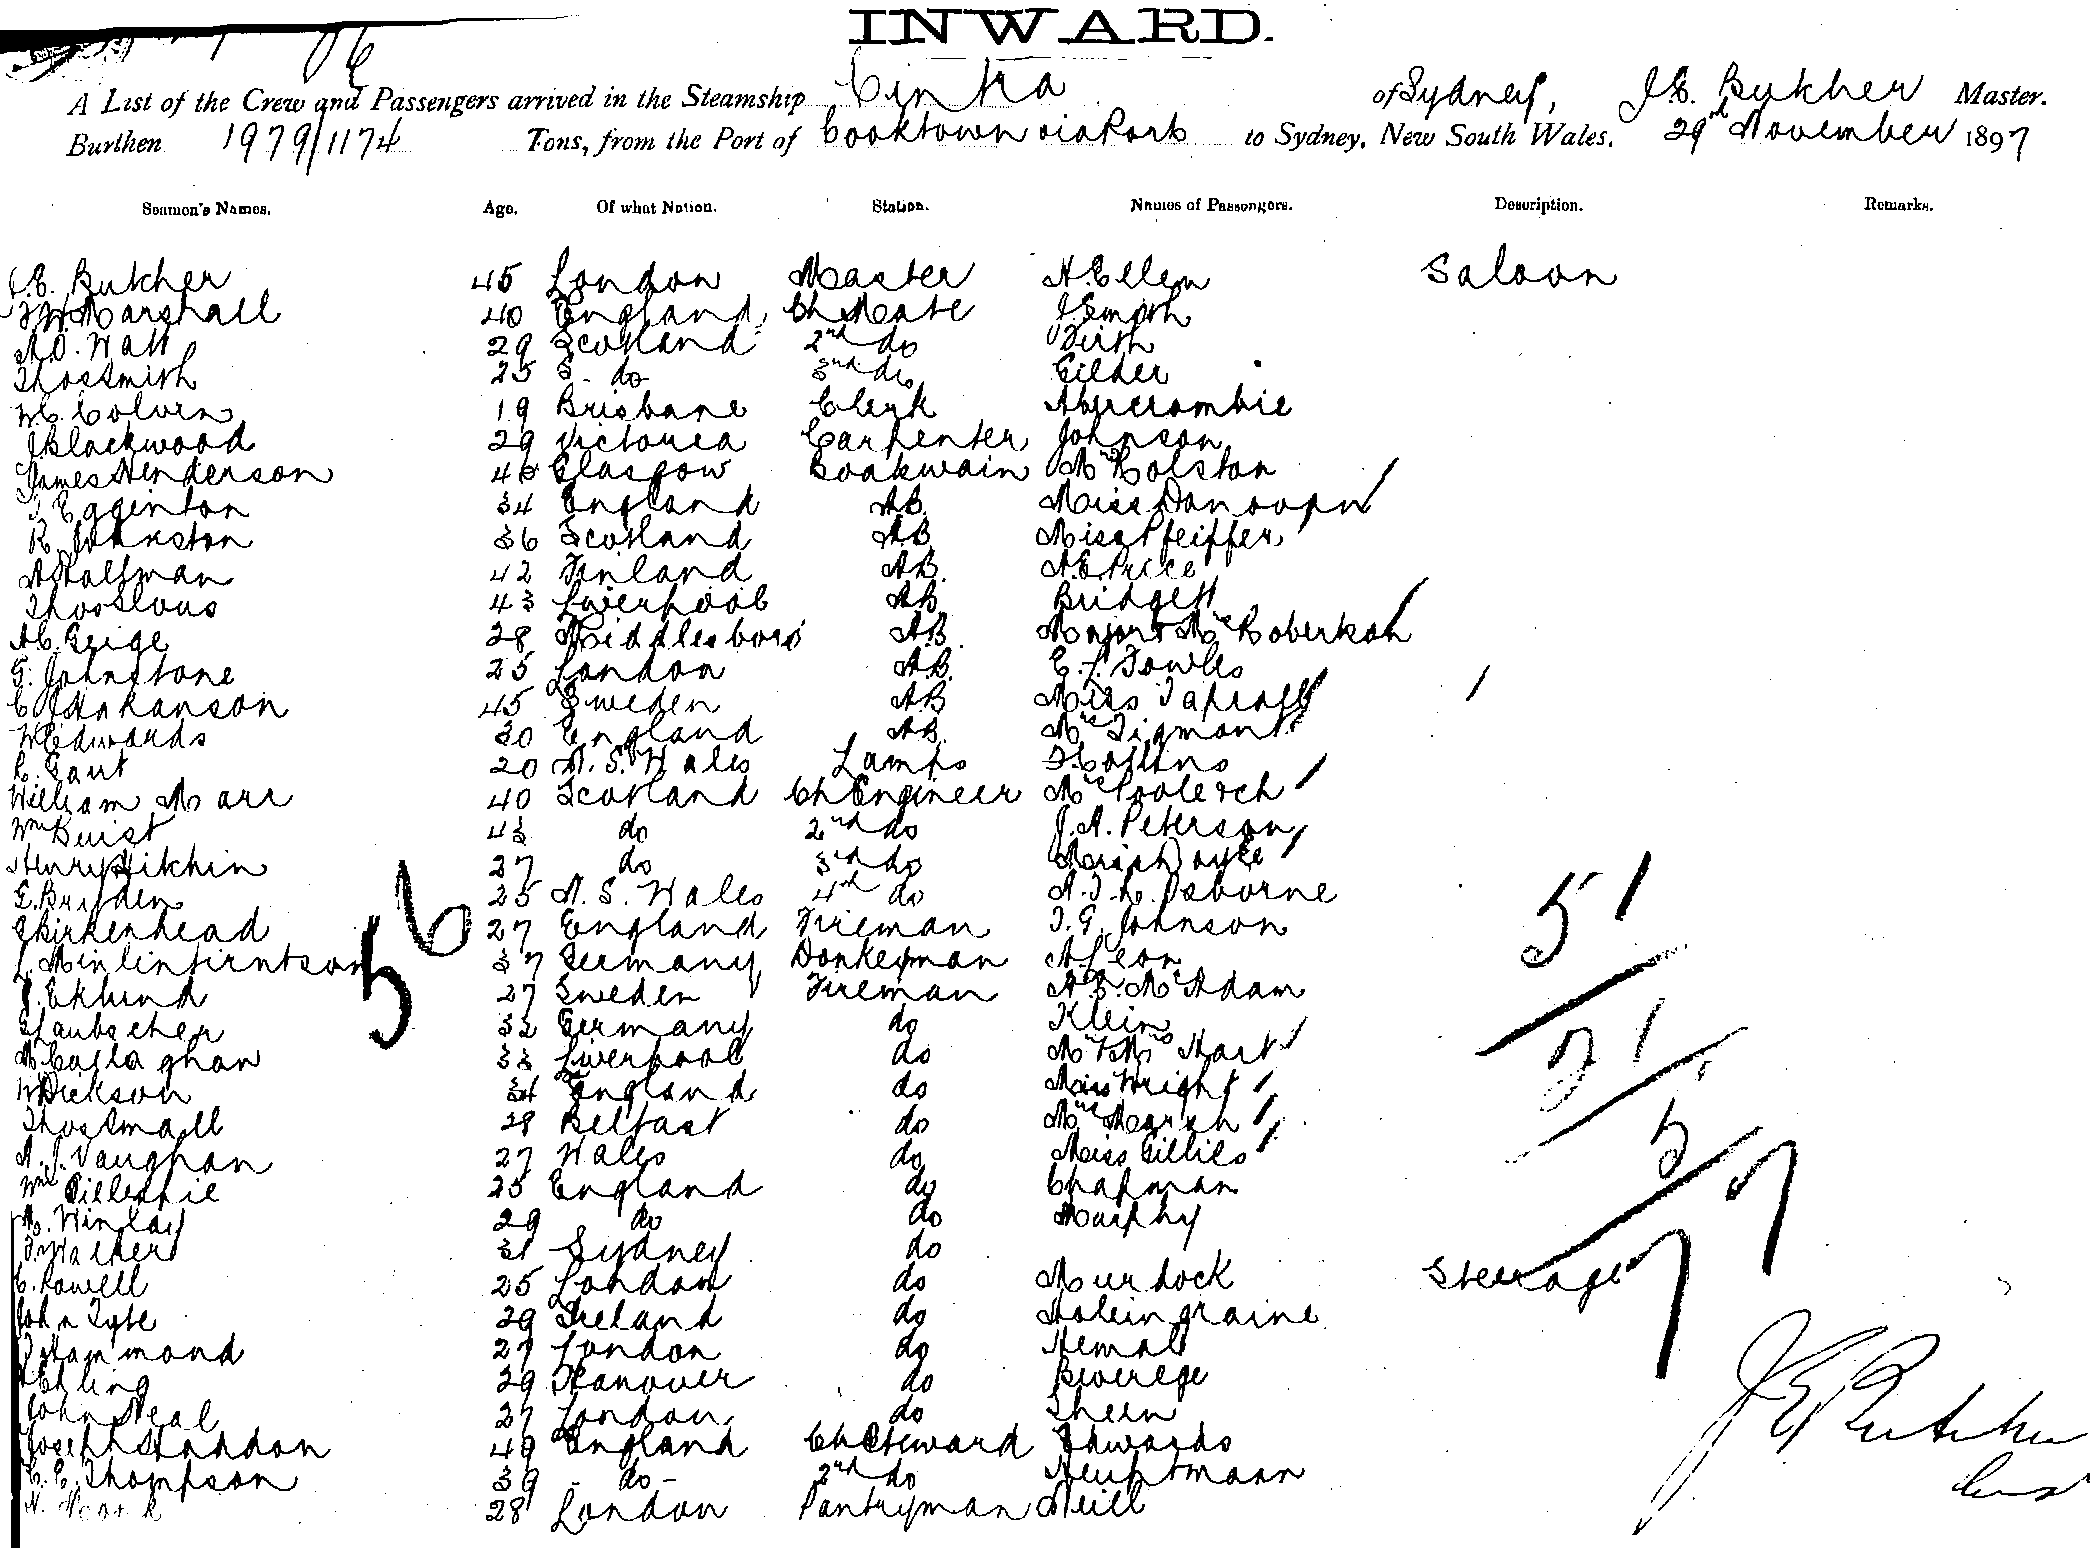 INWARD.
A List of the Crew and Passengers arrived in the Steamship Cintra of Sydney, J.E. Butcher Master.
Burthen 1979/1174 Tons, from the Port of Cooktown via Ports to Sydney, New South Wales. 29th November 1897
Seamen's Names. Age. Of what Nation. Station. Names of Passengers. Description. Remarks.
J.E. Butcher 45 London Master A. Ellem Saloon
Marshall 40 England Ch Mate J. Smyth
A.D. Watt 29 Scotland 2nd do Firth
Thos Smith 25 S. do 3rd do Gilder
W.C. Colvin 19 Brisbane Clerk Abercrombie
J Blackwood 29 Victoria Carpenter Johnson
James Henderson 46 Glasgow Boatswain Mrs Colston
T Egginton 34 England AB Miss Donovan
R. Johnston 36 Scotland AB Miss Pfeiffer
A Stallman 42 Finland AB. A.E. Price
Thos Slous 43 Liverpool AB Bridgett
28 Middlesboro AB. Major & Mrs Robertson
G. Johnstone 25 London AB. E.L. Fowles
C J Hakanson 45 Sweden AB Miss
W Edwards 30 England AB. Mrs
R. Gaut 20 N.S. Wales Lamps Hollins
William Marr 40 Scotland Ch Engineer Mrs
Wm Buist 43 do 2nd do J.A. Peterson
Henry Hitchin 27 do 3rd do Miss Doyle
E. Bryden 25 N.S. Wales 4th do A.T.L. Osborne
J Birkenhead 27 England Fireman T.G. Johnson
37 Germany Donkeyman A Leon
J. Eklund 27 Sweden Fireman A.E. McAdam
E Laubscher 32 Germany do Klein
M. Callaghan 33 Liverpool do Mr & Mrs Hart
W Dickson 34 England do Miss Wright
Thos Small 28 Belfast do Mrs Marsh
A.J. Vaughan 27 Wales do Miss Gillies
Wm Gillespie 25 England do Chapman
A. Winlay 29 do do Murphy
T. Walker 31 Sydney do
C. Powell 25 London do Murdock Steerage
John Tyte 29 Ireland do Holeingraine
T Hammond 27 London do Hemal
Ehling 29 Hanover do Beverege
John Neal 27 London do Sheen
Joseph Standon 49 England Ch Steward Edwards
C.E. Thompson 39 - do - 2nd do
28 London Pantryman Neill
56
51
21
5
77
J E Butcher